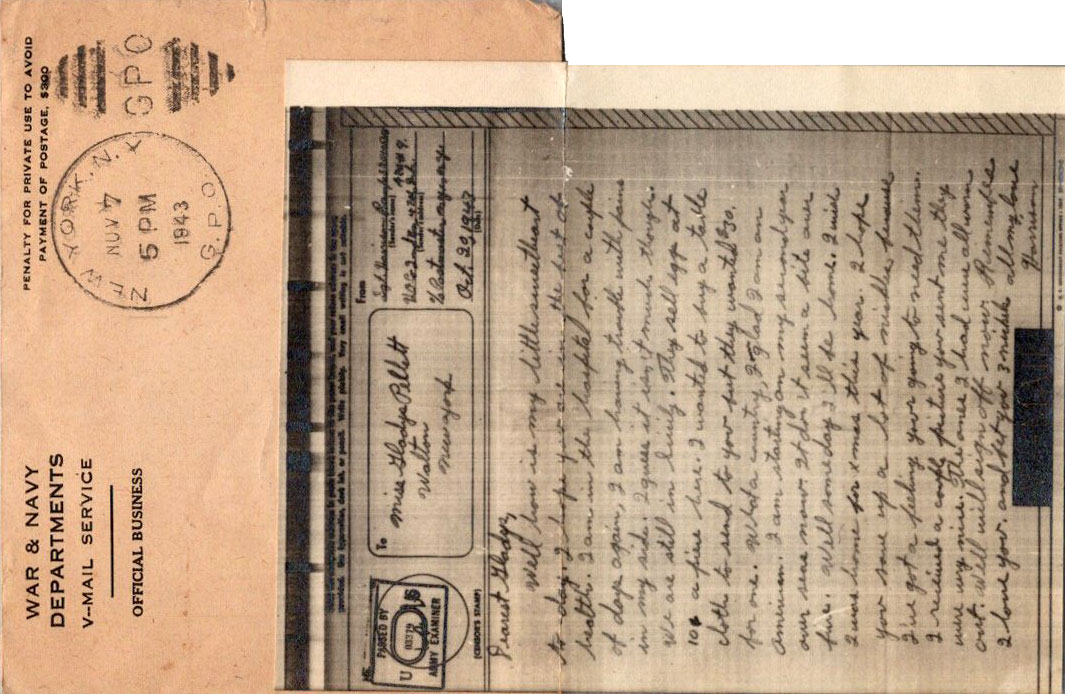 WAR & NAVY
DEPARTMENTS
V-MAIL SERVICE
OFFICIAL BUSINESS
PENALTY FOR PRIVATE USE TO AVOID
PAYMENT OF POSTAGE, $300
NEW YORK, N.Y.
NOV 7
5 PM
1943
G.P.O.
GPO
PASSED BY
U S
ARMY EXAMINER
(CENSOR'S STAMP)
To
Miss Gladys Pellett
Walton
New York
From
(Sender's name)
(Sender's address)
% Postmaster
Oct. 29, 1943
(Date)
Dearest Gladys,
Well how is my little sweetheart
to-day. I hope you are in the best of
health. I am in the hospital for a couple
of days again, I am having trouble with pains
in my side. I guess it isn't much though.
We are still in Sicily. They sell eggs at
10¢ a piece here. I wanted to buy a table
cloth to send to you but they wanted $30.
for one. What a country, I'm glad I am an
American. I am starting on my second year
over seas now. It don't seem a bit over
five. Well someday I'll be home. I wish
I was home for xmas this year. I hope
you save up a lot of nickles because
I've got a feeling your going to need them.
I received a couple picture you sent me they
were very nice. The ones I had were all worn
out. Well will sign off now. Remember
I love you. and bet you 3 nickels all my love
Harrison